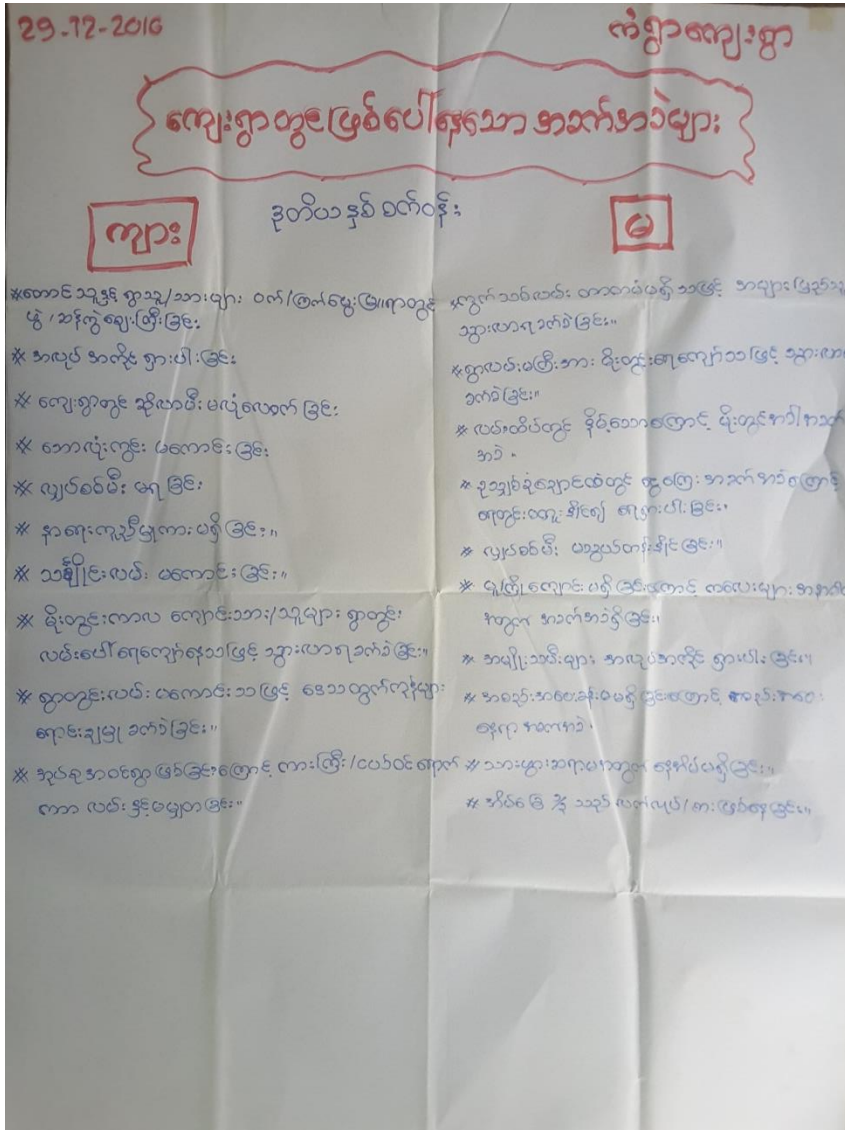 29-12-2016
ကံရွာကျေးရွာ
ကျေးရွာတွင်ဖြစ်ပေါ်နေသော အခက်အခဲများ
ဒုတိယနှစ်စက်ဝန်း
ကျား
*တောင်သူနှင့် ရွာသူ/သားများ ဝက်/ကြက်မွေးမြူရာတွင်
ဖွဲ/ဆန်ကွဲဈေးကြီးခြင်း
* အလုပ် အကိုင် ရှားပါးခြင်း
* ကျေးရွာတွင် ဆိုလာမီး မလုံလောက်ခြင်း
* ဘောလုံးကွင်း မကောင်းခြင်း
* လျှပ်စစ်မီး မရခြင်း
* နာရေးကူညီမှုကားမရှိခြင်း။
* သင်္ချိုင်းလမ်း မကောင်းခြင်း။
* မိုးတွင်းကာလ ကျောင်းသား/သူများ ရွာတွင်း
လမ်းပေါ်ရေကျော်နေသဖြင့် သွားလာရခက်ခဲခြင်း။
* ရွာတွင်းလမ်း မကောင်းသဖြင့် ဒေသထွက်ကုန်များ
ရောင်းချမှု ခက်ခဲခြင်း။
* အုပ်စုအဝင်ရွာဖြစ်ခြင်းကြောင့် ကားကြီး/ငယ်ဝင်ရောက်
ကာ လမ်းနှင့်မမျှတခြင်း။
မ
*ကွက်သစ်လမ်း တာတမံမရှိသဖြင့် အများပြည်သူ
သွားလာရခက်ခဲခြင်း။
*ရွာလမ်းမကြီးအား မိုးတွင်းရေကျော်သဖြင့် သွားလာ
ခက်ခဲခြင်း။
* လမ်းထိပ်တွင် နိမ့်သောကြောင့် မိုးတွင်အခါအခက်
အခဲ။
ငွေကြေး အခက်အခဲကြောင့်
ရေတွင်းမတူးနိုင်၍ ရေရှားပါးခြင်း။
* လျှပ်စစ်မီး မသွယ်တန်းနိုင်ခြင်း။
* မူ/ကြိုကျောင်းမရှိခြင်းကြောင့် ကလေးများ
အတွက် အခက်အခဲရှိခြင်း။
* အမျိုးသမီးများ အလုပ်အကိုင် ရှားပါးခြင်း။
* အစည်းအဝေးခန်းမမရှိခြင်းကြောင့် အစည်းအဝေး
နေရာ အခက်အခဲ။
* သားဖွားဆရာမအတွက် နေအိမ်မရှိခြင်း။
* အိမ်ခြေ ၃ သည် လက်လုပ်/စားဖြစ်နေခြင်း။